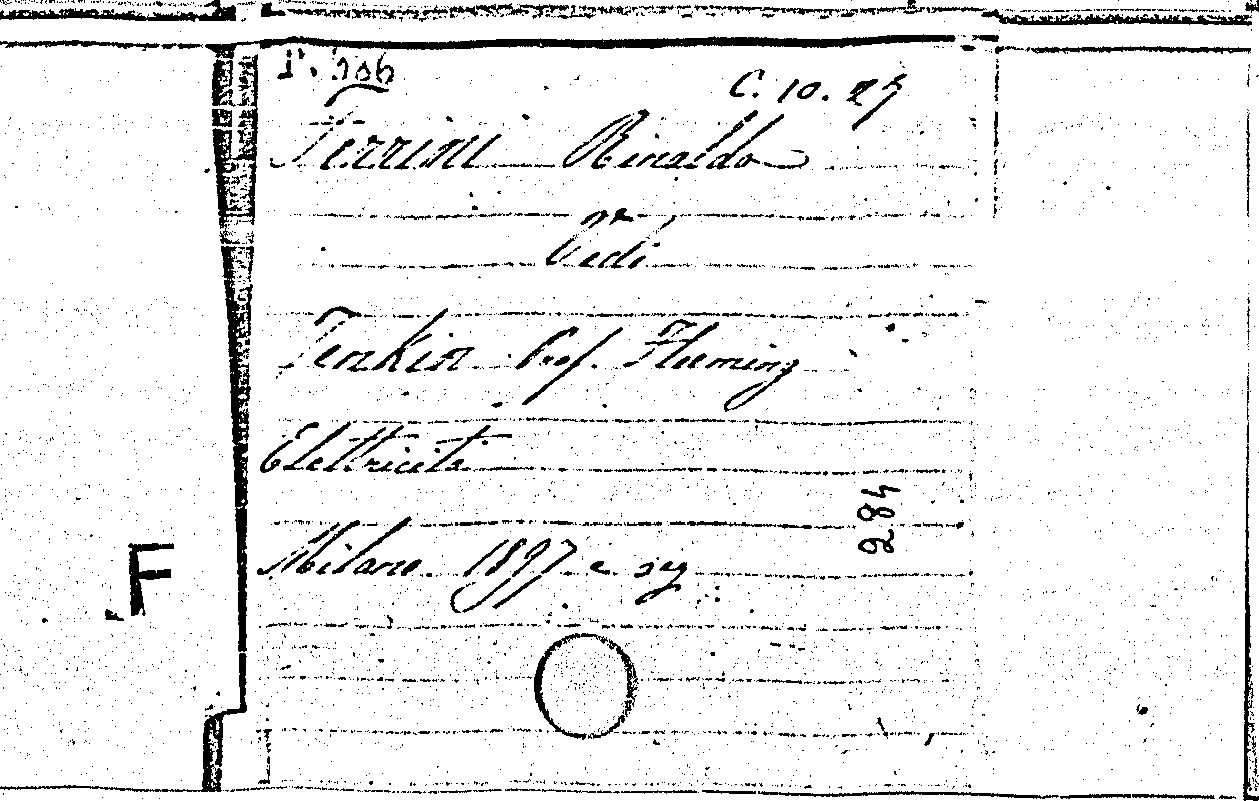 C. 10. 27
Ferrini Rinaldo
Vedi
Jenkin Prof. Fleeming
Elettricità
Milano 1897 e seg
284
F